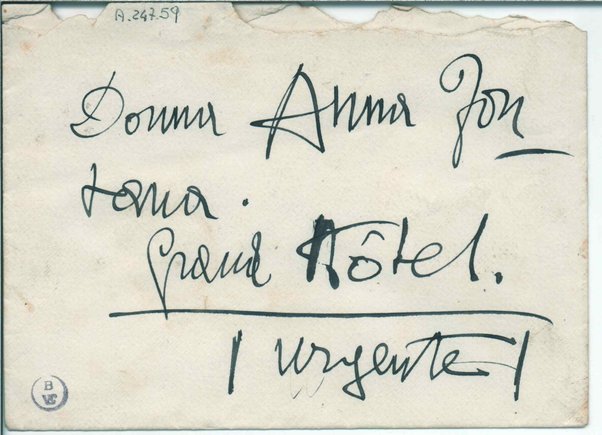 A.247.59
Donna Anna Fon
tana.
Grand Hôtel.
| urgente |
B
VE